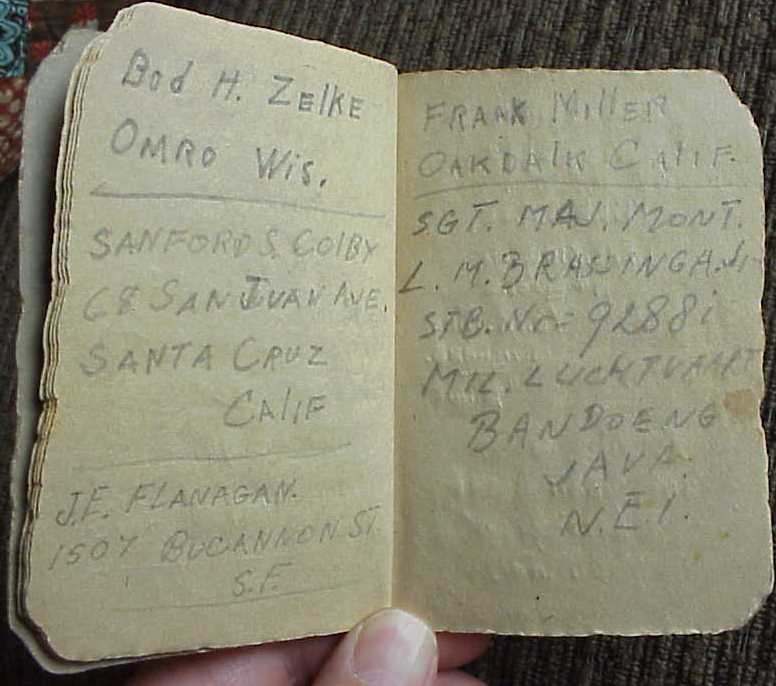 Bod H. Zelke
Omro Wis.
SANFORD S. COlBY
68 SAN JUAN AVE.
SANTA CRUZ
CAlIF
J.F. FLANAGAN.
1507 BUCANNON ST.
S.F.
FRANK MillER
OAKDAlK CAlIF.
SGT. MAJ. MONT.
L. M.
STB. No = 92881
MIL. LUCHTVAART
BANDOENG
JAVA.
N.E.I.